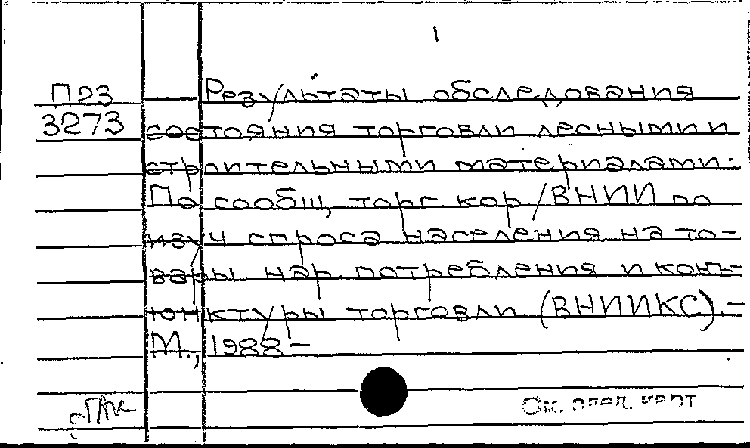 1
П23 Результаты обследования
3273 состояния торговли лесными и
строительными материалами:
По сообщ. торг. кор/ВНИИ по
изуч спроса населения на то-
вары нар. потребления и конъ-
юнктуры торговли (ВНИИКС).-
М., 1988-
См. след. карт